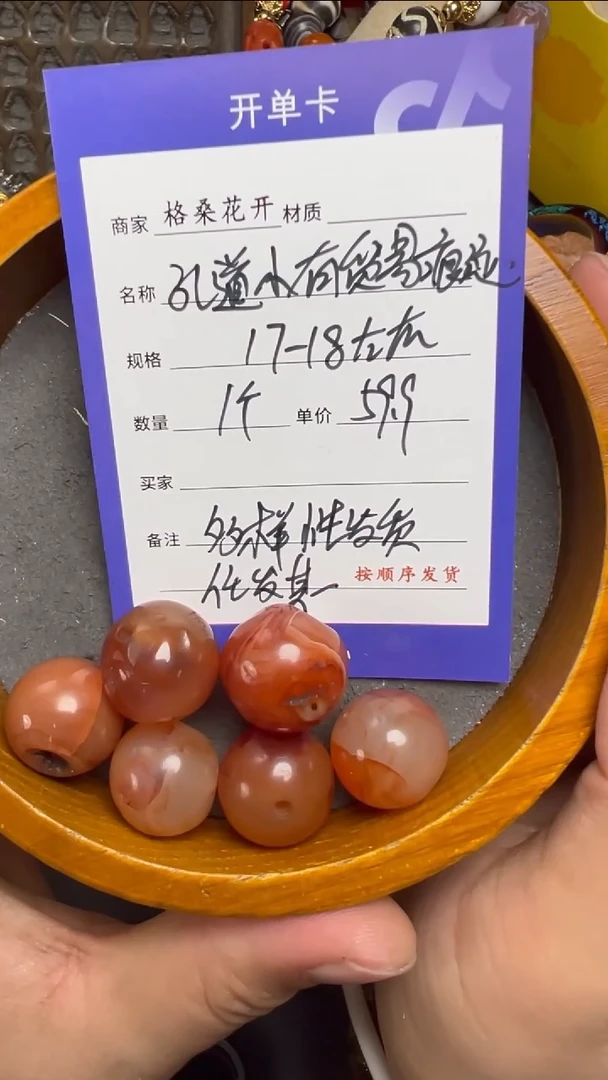 开单卡
商家 格桑花开 材质
名称 孔道小有
规格 17-18左右
数量 1个 单价 59.9
买家
备注 多样性发货
任发其一
按顺序发货